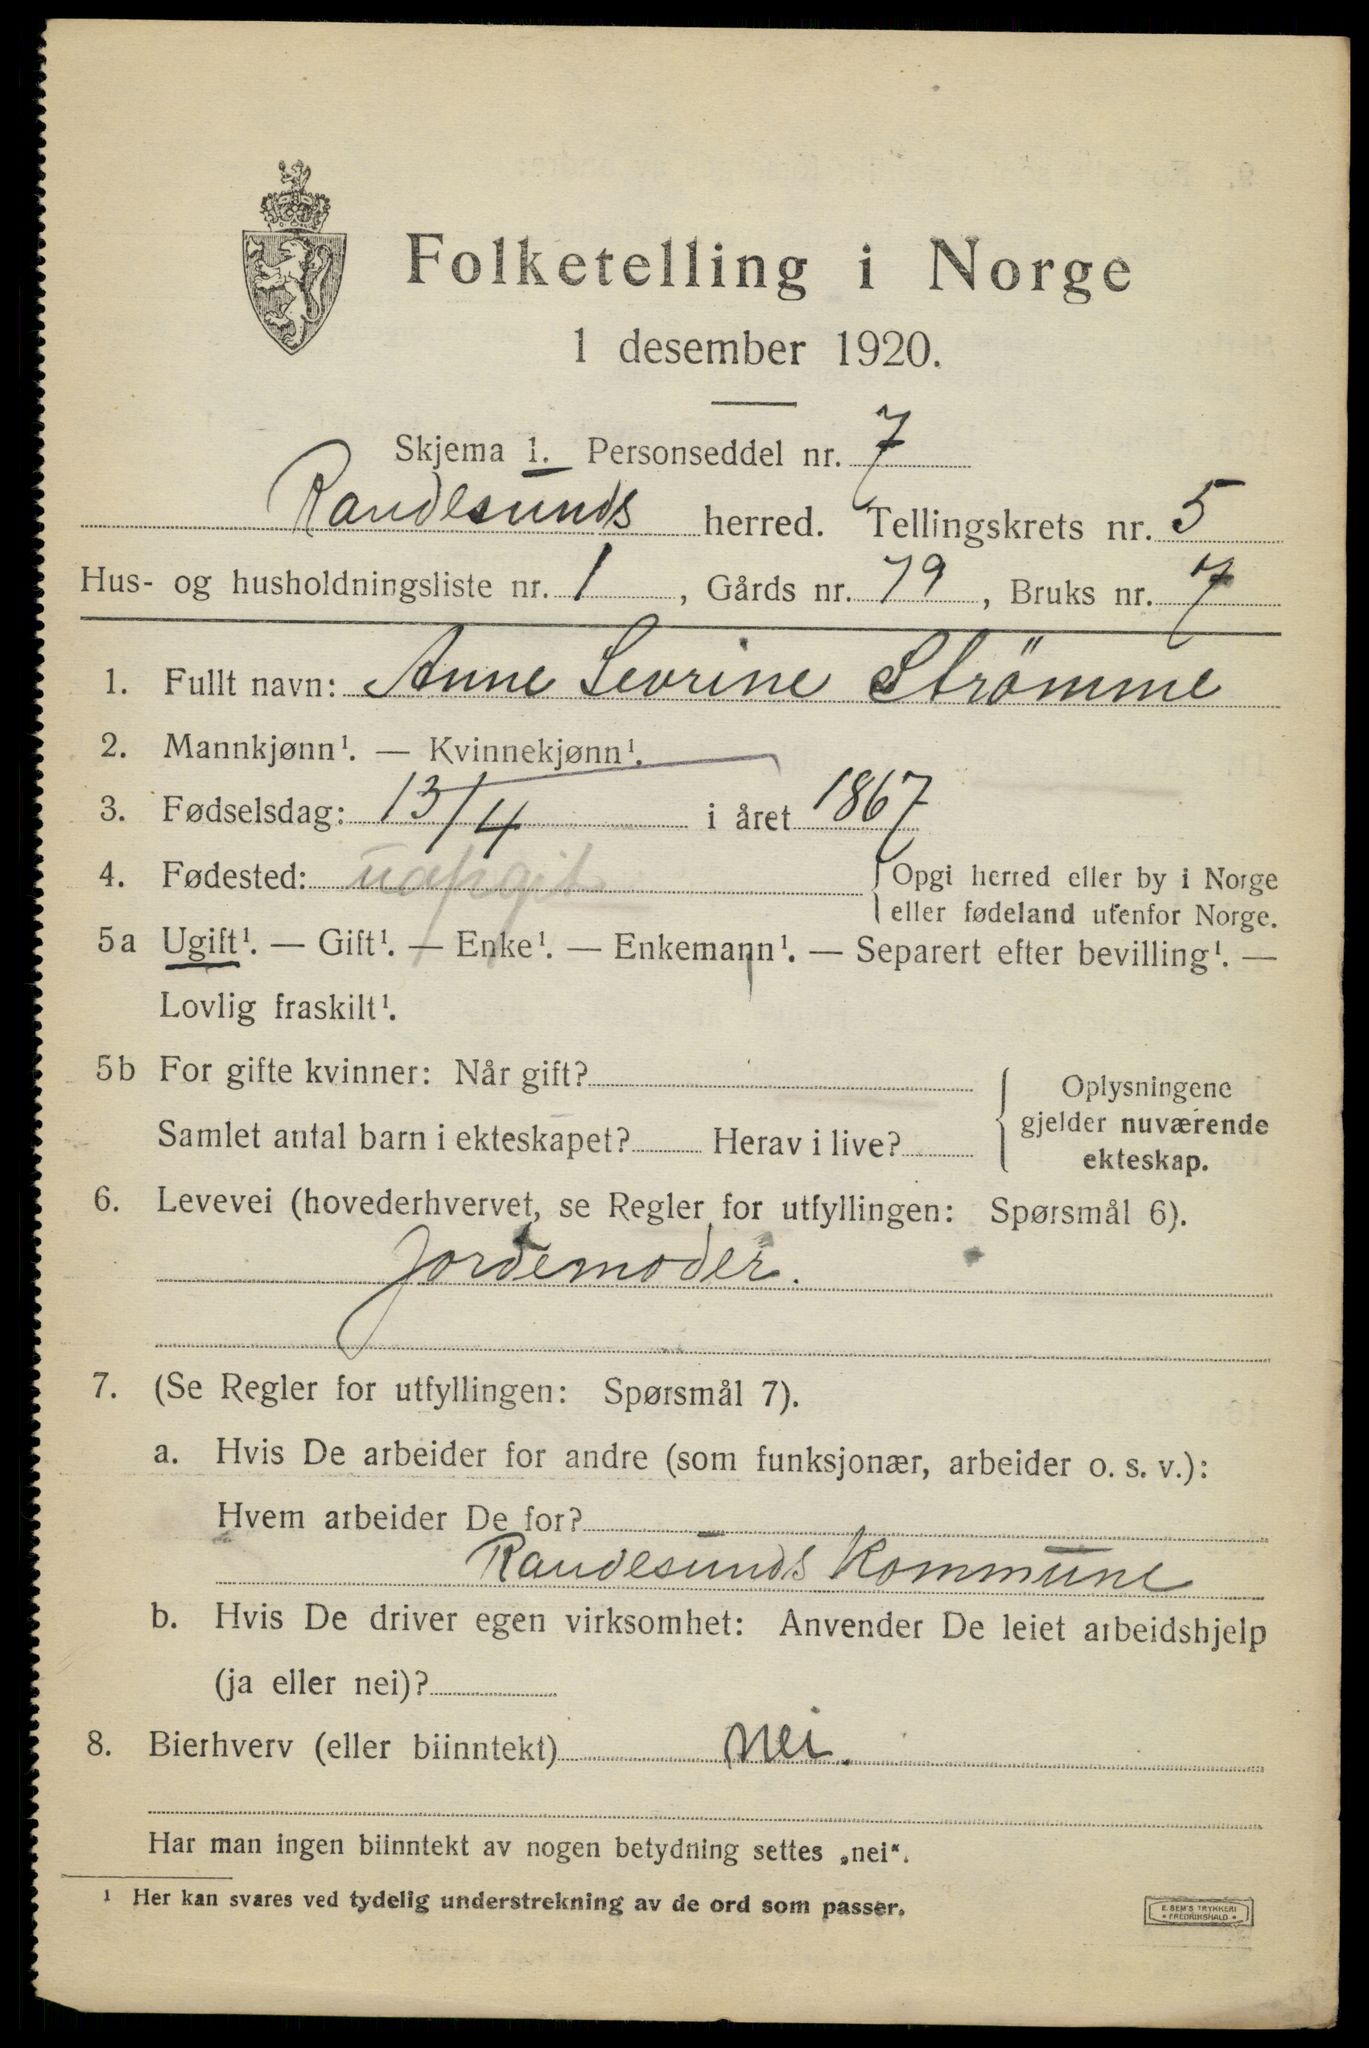 Folketelling i Norge
1 desember 1920.
Skjema 1. Personseddel nr. 7
Randesunds herred. Tellingskrets nr. 5
Hus- og husholdningsliste nr. 1, Gårds nr. 79, Bruks nr. 7
1. Fullt navn: Anne Sevrine Strömme
2. Mannkjønn¹. — Kvinnekjønn¹.
3. Fødselsdag: 13/4 i året 1867
4. Fødested: uopgit {Opgi herred eller by i Norge
eller fødeland utenfor Norge.
5a Ugift¹. — Gift¹. — Enke¹. — Enkemann¹. — Separert efter bevilling¹. —
Lovlig fraskilt¹.
5b For gifte kvinner: Når gift?
Samlet antal barn i ekteskapet? Herav i live?
{Oplysningene
gjelder nuværende
ekteskap.
6. Levevei (hovederhvervet, se Regler for utfyllingen: Spørsmål 6).
Jordemoder.
7. (Se Regler for utfyllingen: Spørsmål 7).
a. Hvis De arbeider for andre (som funksjonær, arbeider o. s. v.):
Hvem arbeider De for?
Randesunds Kommune
b. Hvis De driver egen virksomhet: Anvender De leiet arbeidshjelp
(ja eller nei)?
8. Bierhverv (eller biinntekt) nei.
Har man ingen biinntekt av nogen betydning settes „nei“.
¹ Her kan svares ved tydelig understrekning av de ord som passer.
E. SEM'S TRYKKERI
• FREDRIKSHALD •